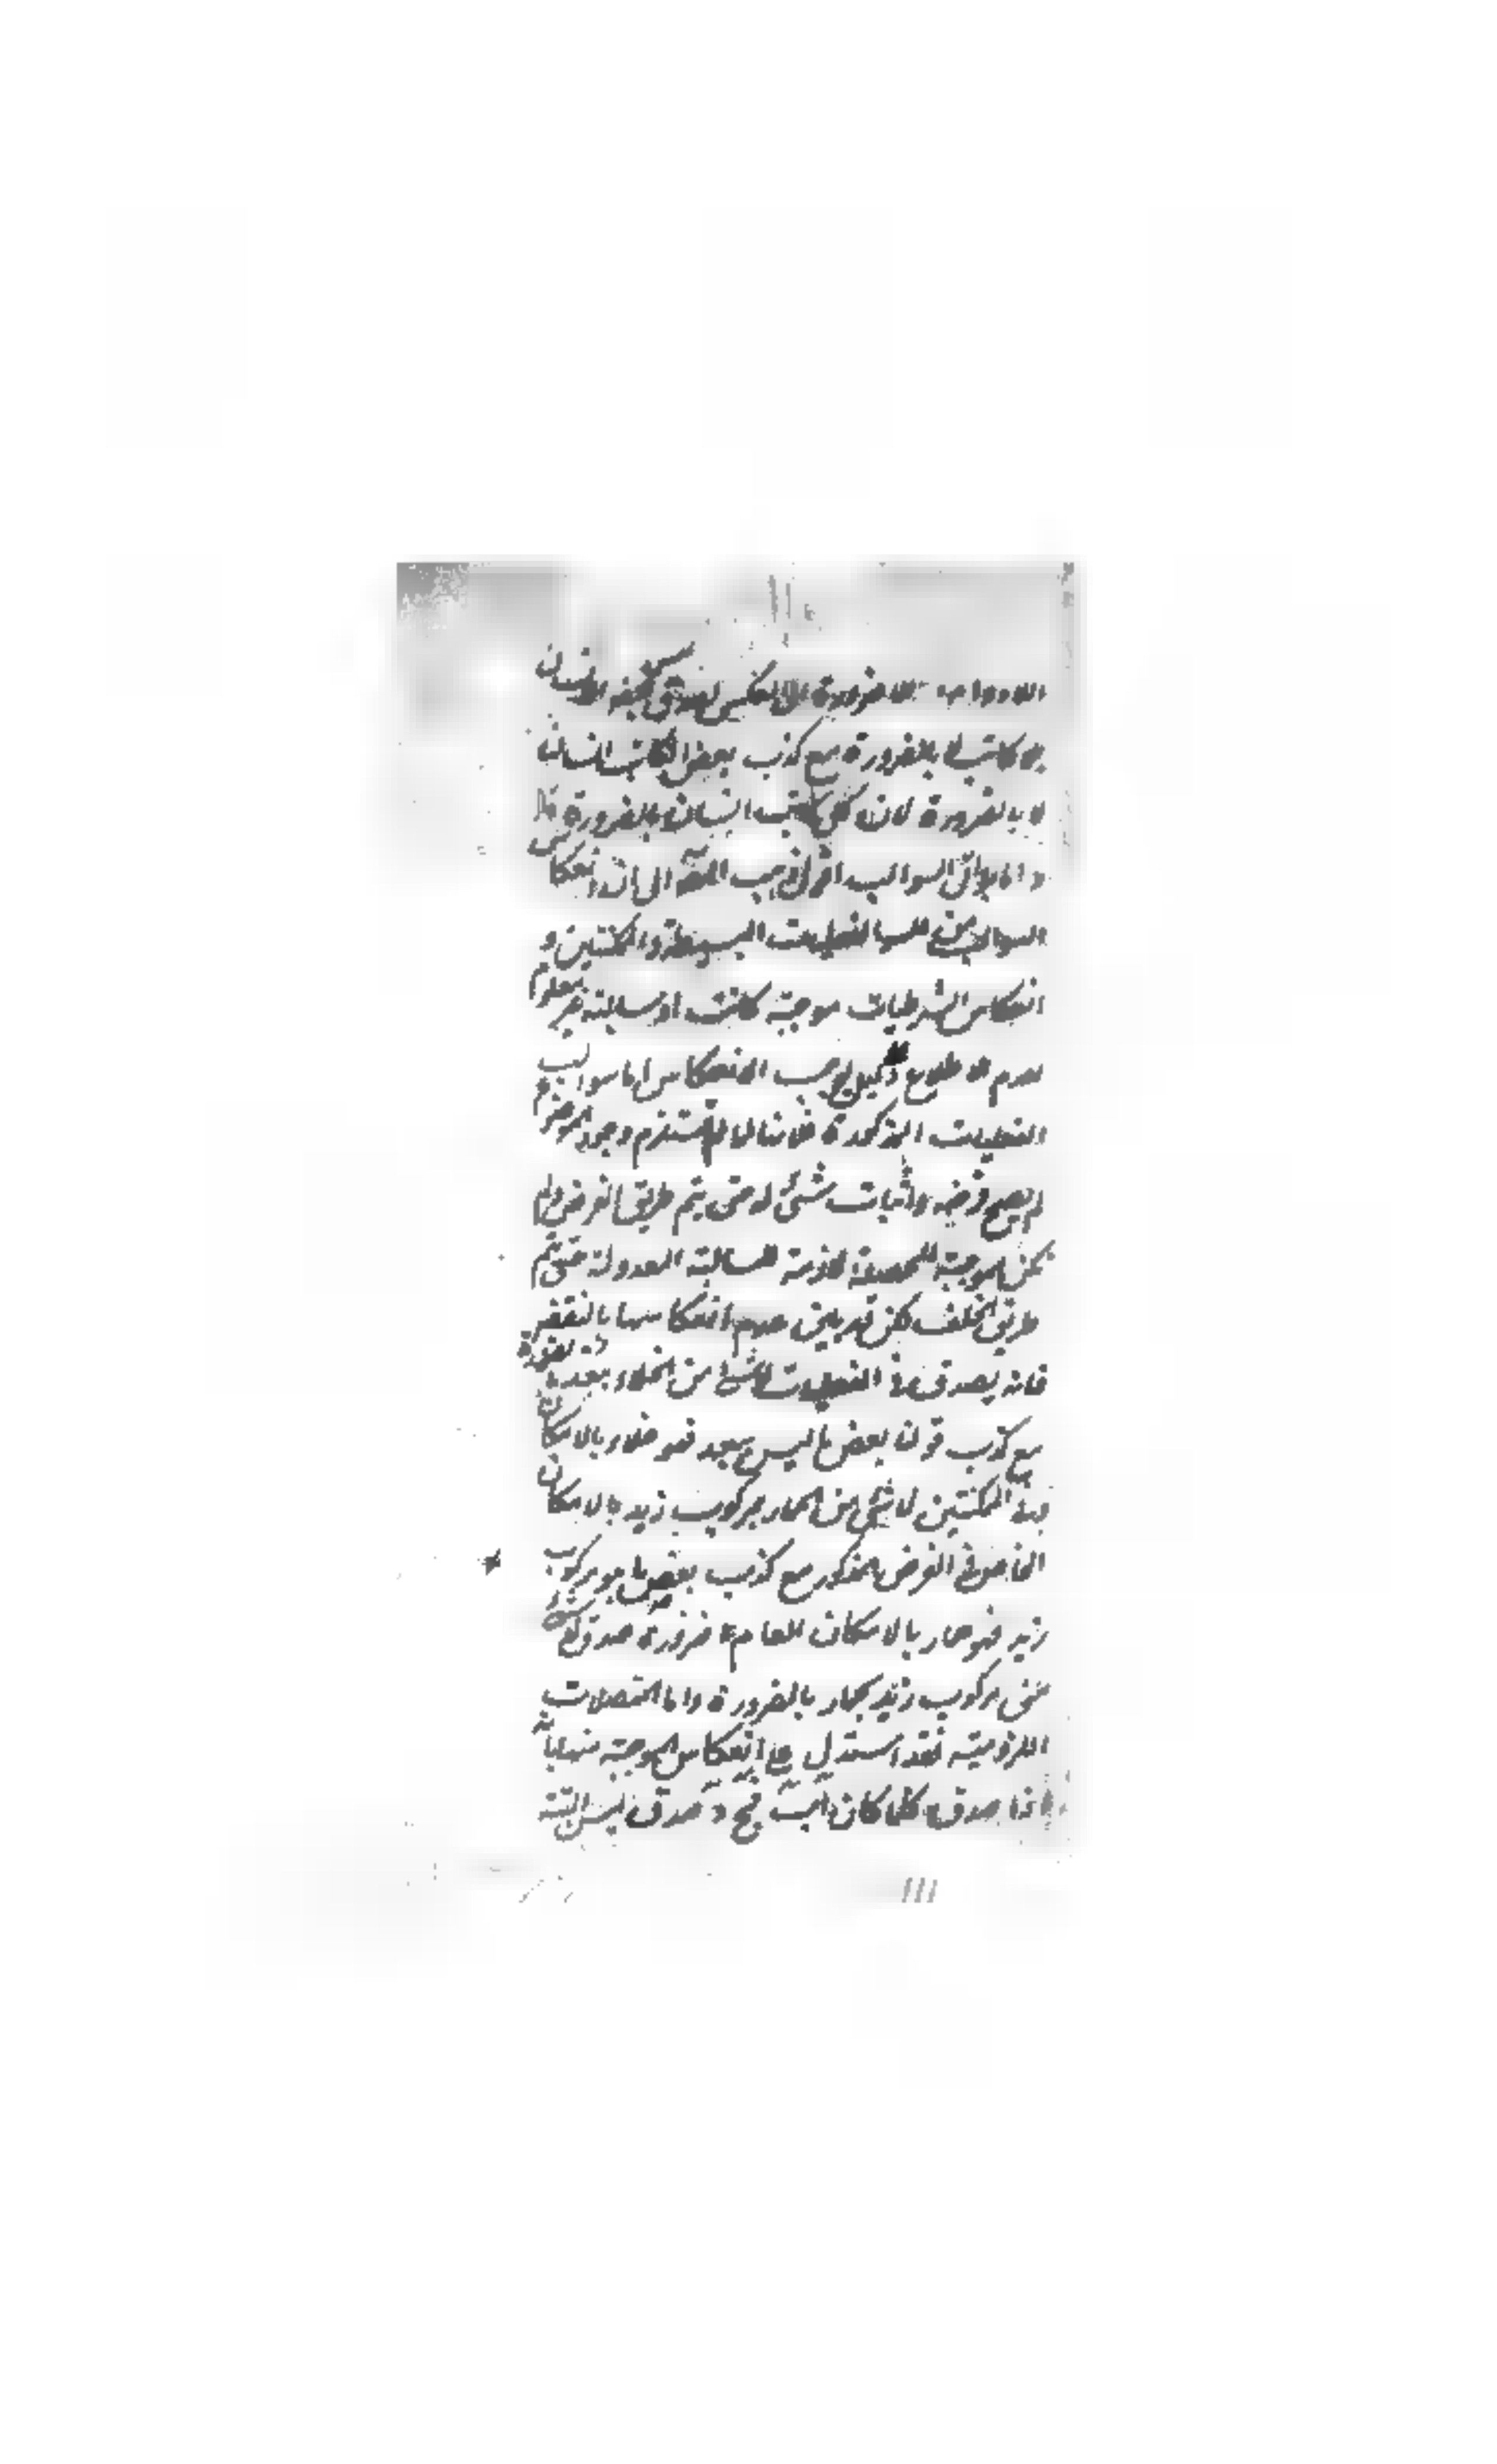 اللادوام واللاضرورة الى العكس لصدق بعض الانسان
هو كاتب لا بالضرورة مع كذب بعض الكاتب انسان
لا بالضرورة لان كل كاتب انسان بالضرورة قال
واما بواقى السوالب اقول ذهب المص الى ان انعكاس
السوالب من الفعليات البسيطة والممكنتين و
انعكاس الشرطيات موجبة كانت او سالبة غير معلوم
لعدم الاطلاع دليل يوجب الانعكاس اما سوالب
الفعليات المذكورة فلانها لما لم تستلزم وجود الموضوع
لم يصح فرضه واثبات شئ له حتى يتم طريق الفرض ولم
تكن الموجبة المحصلة لازمة للسالبة المعدولة حتى يتم
طريق الخلف لكن قد بين عدم انعكاسها بالنقض
فانه يصدق فى الفعليات لا شئ من الخلاء ببعد بالضرورة
مع كذب قولنا بعض ما ليس ببعد فهو خلاء بالامكان
وفى الممكنتين لا شئ من الحمار بمركوب زيد بالامكان
الخاص فى الفرض المذكور مع كذب بعض ما هو مركوب
زيد فهو حمار بالامكان العام ضرورة صدق لا شئ
من مركوب زيد بحمار بالضرورة واما المتصلات
اللزومية فقد استدل على انعكاس الموجبة منها بانه
اذا صدق كلما كان اب فج د صدق ليس البتة